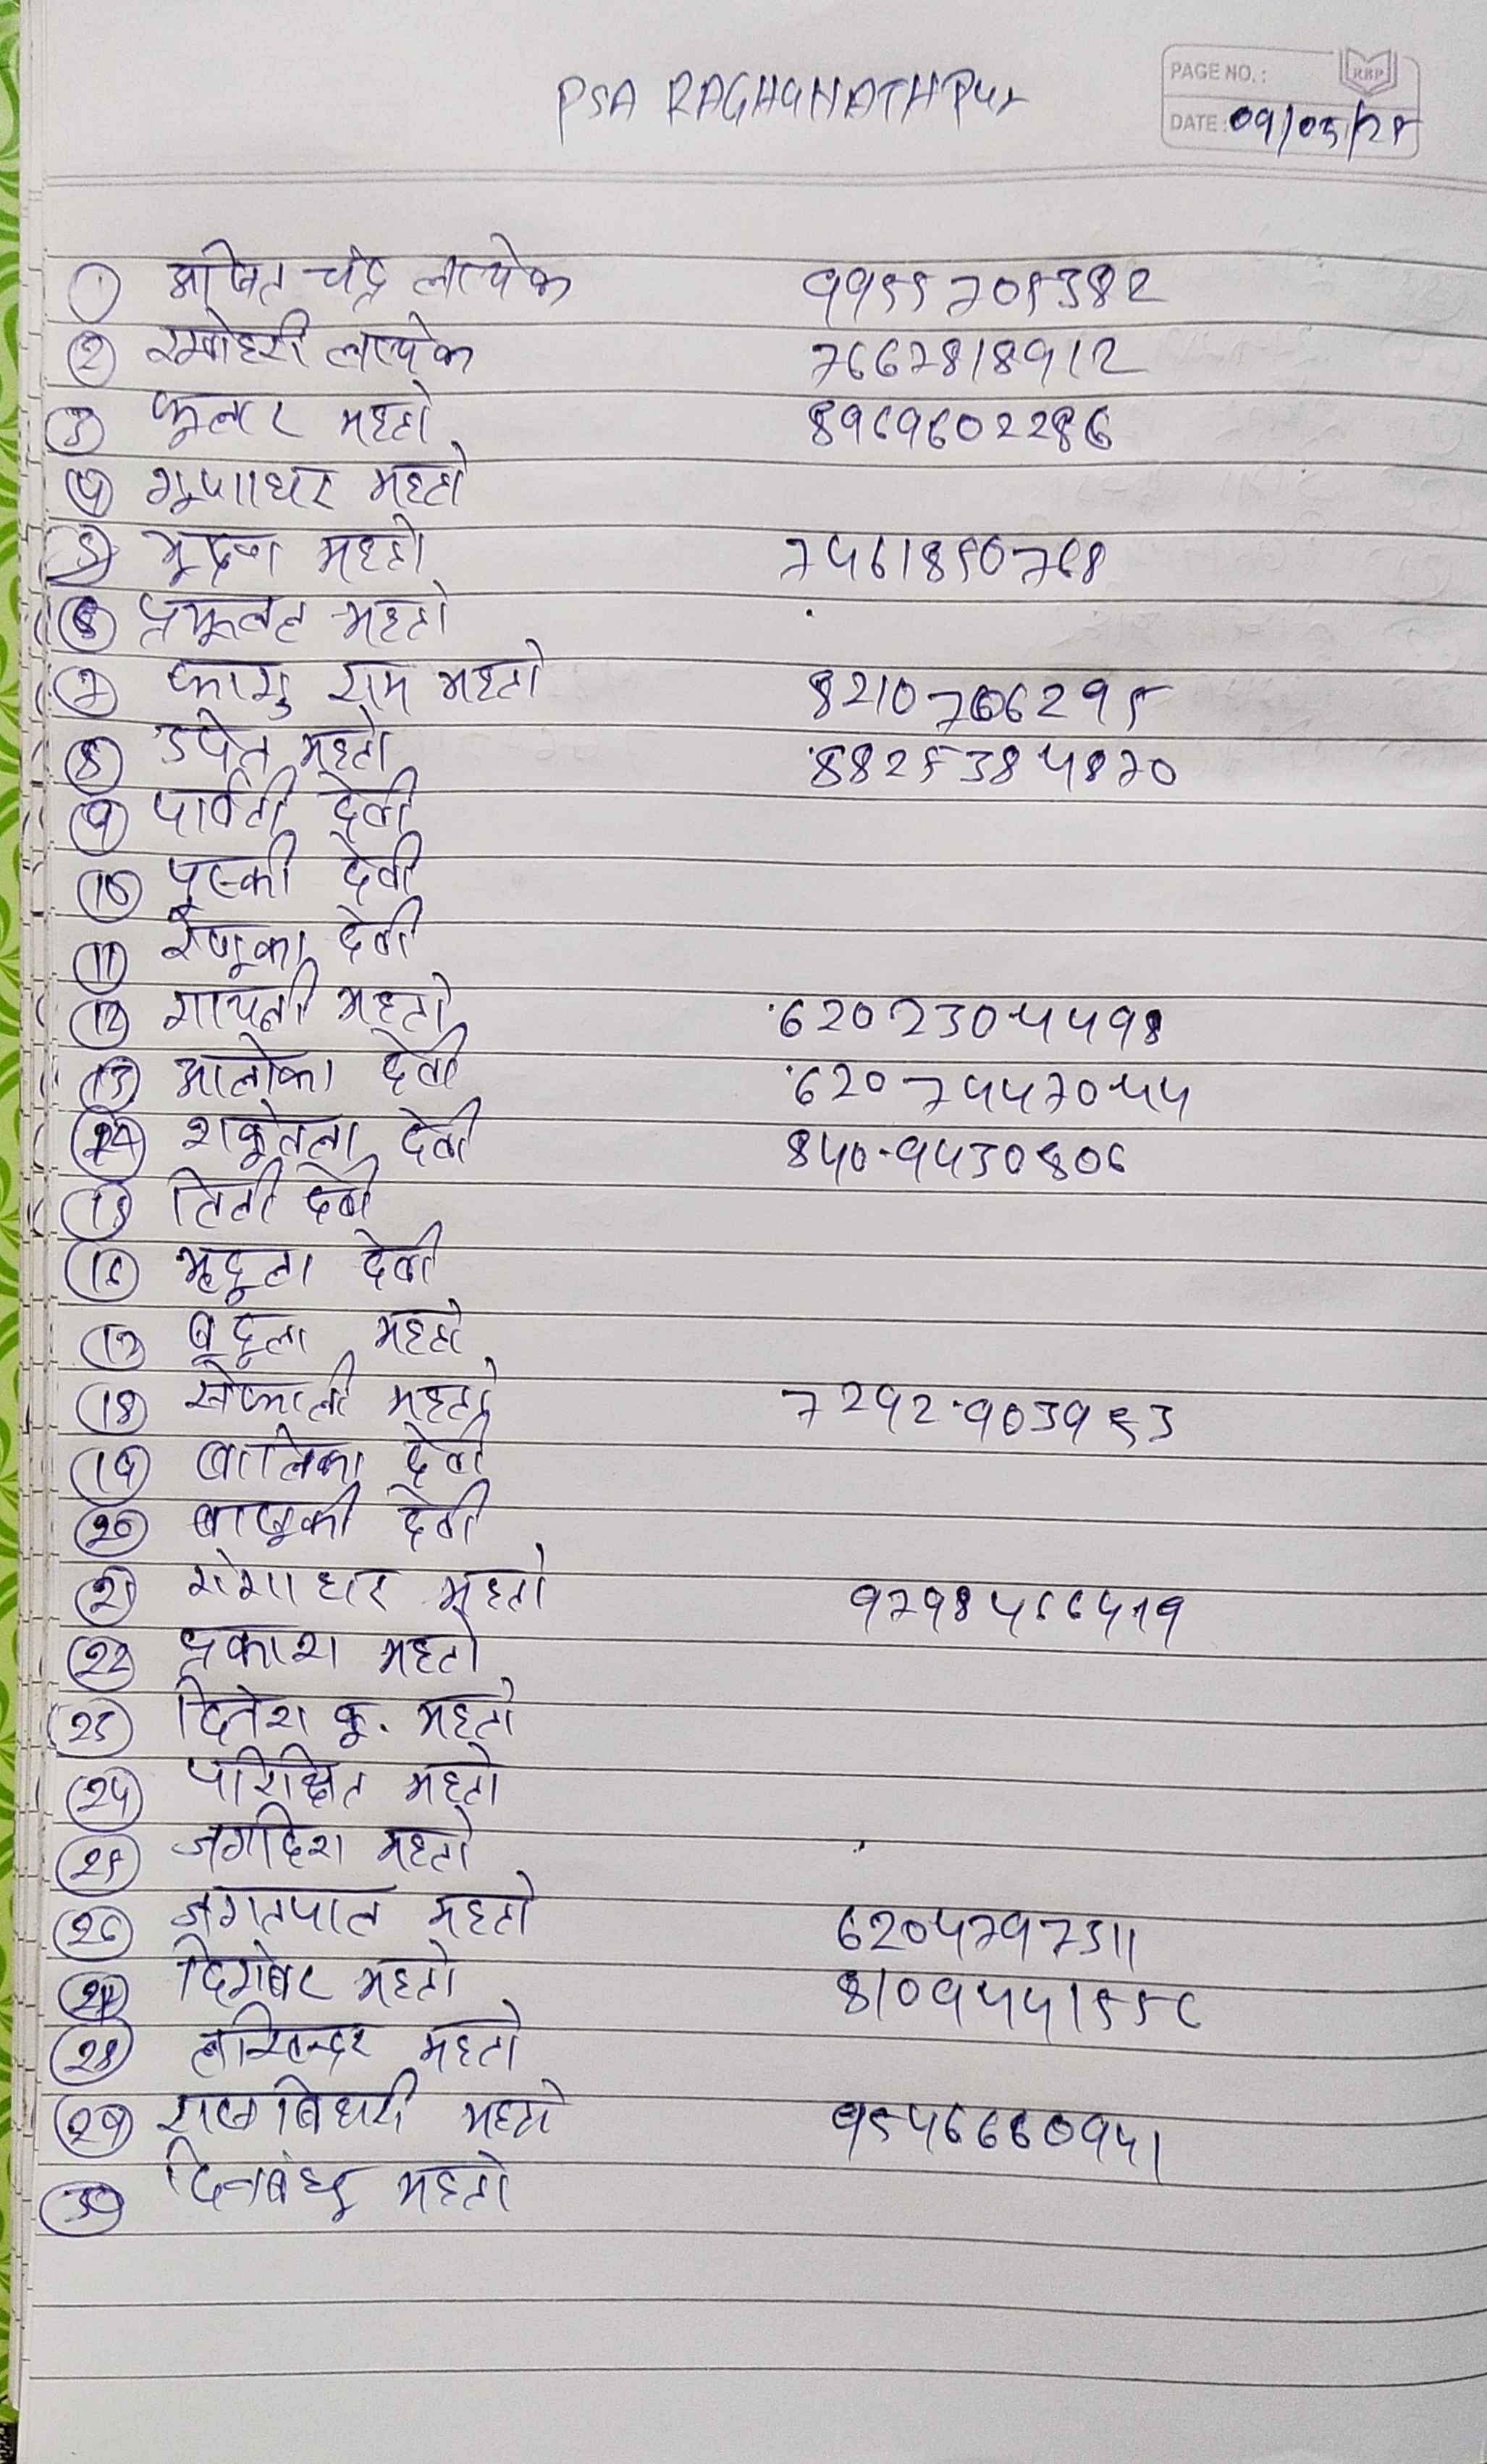 PSA RAGHUNATHPUR
PAGE NO.:
RBP
DATE: 09/05/25
① अजित चंद्र लायेक 9955705382
② लायेक 7667818912
③ फुलचर महतो 8969602286
④ गुणाधर महतो
⑤ भूषण महतो 7461850768
⑥ प्रफुलल महतो
⑦ फागु राम महतो 8210706295
⑧ उपेन महतो 8825384870
⑨ पार्वती देवी
⑩ पुस्की देवी
⑪ रेणुका देवी
⑫ गायत्री महतो 6202304498
⑬ आलोका देवी 6207447044
⑭ शकुंतला देवी 840-9430806
⑮ तिती देवी
⑯ मृदुला देवी
⑰ बृदुला महतो
⑱ सेफाली महतो 7292903953
⑲ बालिका देवी
⑳ देवी
㉑ गंगाधर महतो 9798456419
㉒ प्रकाश महतो
㉓ दिनेश कु. महतो
㉔ परिक्षित महतो
㉕ जगदिश महतो
㉖ जगतपाल महतो 6204797311
㉗ दिगंबर महतो 810944155
㉘ महतो
㉙ रासबिहारी महतो 9546660941
㉚ दिनबंधु महतो